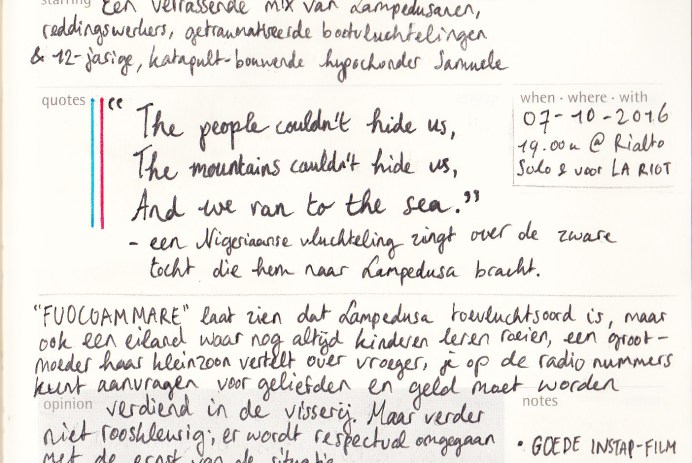 starring Een verrassende mix van Lampedusanen,
reddingswerkers, getraumatiseerde bootvluchtelingen
& 12-jarige, katapult-bouwende hypochonder Samuele
quotes
"The people couldn't hide us,
The mountains couldn't hide us,
And we ran to the sea."
- een Nigeriaanse vluchteling zingt over de zware
tocht die hem naar Lampedusa bracht.
when · where · with
07-10-2016
19.00u @ Rialto
Solo & voor LA RIOT
"FUOCOAMMARE" laat zien dat Lampedusa toevluchtsoord is, maar
ook een eiland waar nog altijd kinderen leren roeien, een groot-
moeder haar kleinzoon vertelt over vroeger, je op de radio nummers
kunt aanvragen voor geliefden en geld moet worden
opinion verdiend in de visserij. Maar verder
niet rooskleurig; er wordt respectvol omgegaan
met de ernst van de situatie
notes
• GOEDE INSTAP-FILM